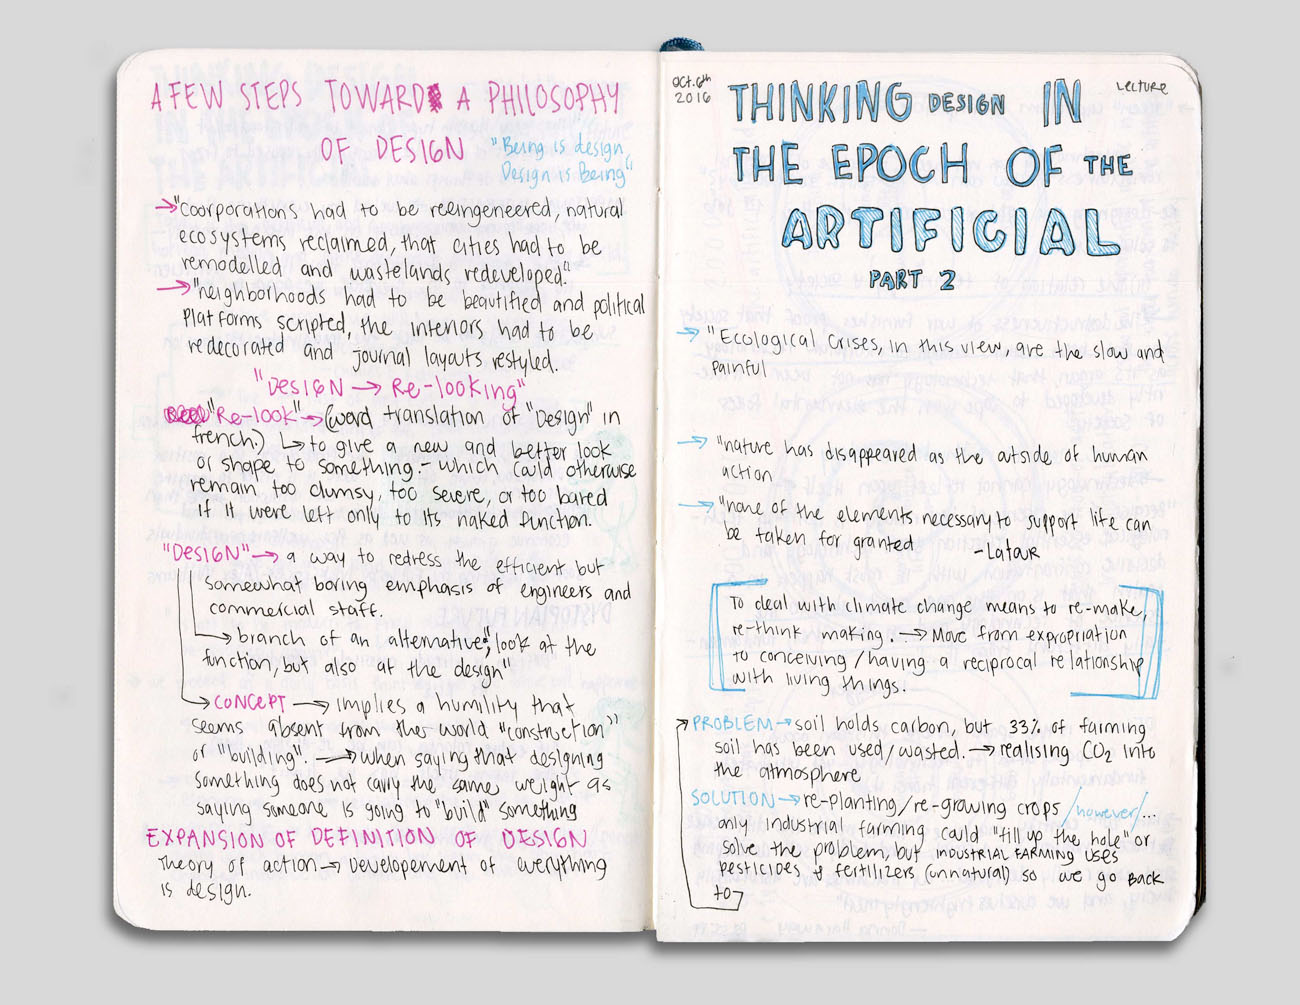 A FEW STEPS TOWARD A PHILOSOPHY
OF DESIGN
"Being is design
Design is Being"
→ "Coorporations had to be reeingeneered, natural
ecosystems reclaimed, that cities had to be
remodelled and wastelands redeveloped."
→ "neighborhoods had to be beautified and political
Platforms scripted, the interiors had to be
redecorated and journal layouts restyled.
"DESIGN → Re-looking"
"Re-look" → (word translation of "Design" in
french.) ↳ to give a new and better look
or shape to something - which could otherwise
remain too clumsy, too severe, or too bared
if it were left only to its naked function.
"DESIGN" → a way to redress the efficient but
somewhat boring emphasis of engineers and
commercial staff.
→ branch of an alternative; "look at the
function, but also at the design"
→ CONCEPT → implies a humility that
seems absent from the world "construction"
or "building". → when saying that designing
something does not carry the same weight as
saying someone is going to "build" something
EXPANSION OF DEFINITION OF DESIGN
Theory of action → Developement of everything
is design.
OCT. 6th
2016
LECTURE
THINKING DESIGN IN
THE EPOCH OF THE
ARTIFICIAL
PART 2
→ "Ecological Crises, in this view, are the slow and
painful
→ "nature has disappeared as the outside of human
action
→ "none of the elements necessary to support life can
be taken for granted -Latour
To deal with climate change means to re-make,
re-think making. → Move from expropriation
to conceiving/having a reciprocal relationship
with living things.
PROBLEM → soil holds carbon, but 33% of farming
soil has been used/wasted. → realising CO2 into
the atmosphere
SOLUTION → re-planting/re-growing crops /however/...
only industrial farming could "fill up the hole" or
solve the problem, but INDUSTRIAL FARMING USES
pesticides & fertilizers (unnatural) so we go BACK
to